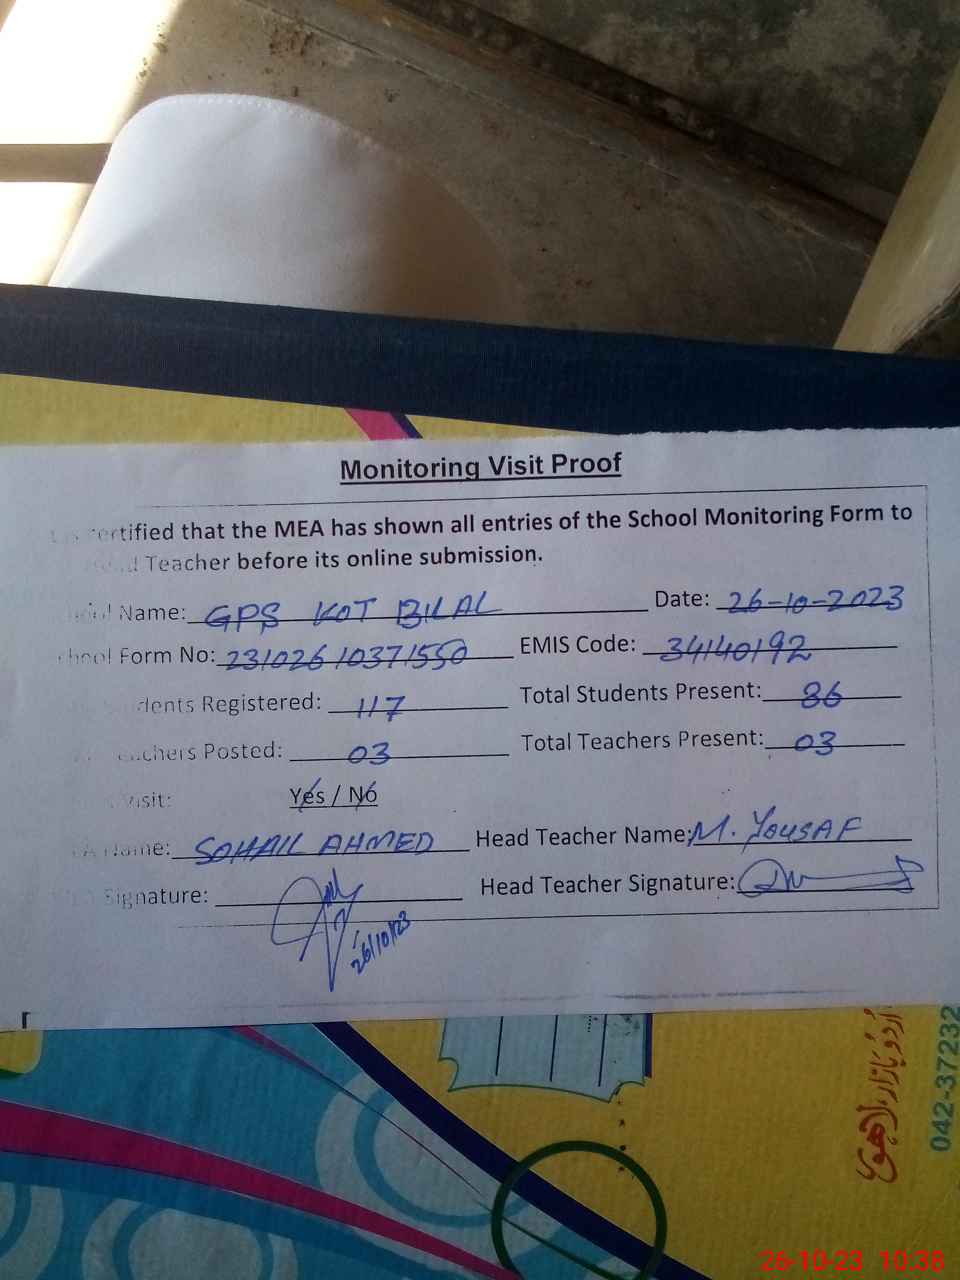 Monitoring Visit Proof
certified that the MEA has shown all entries of the School Monitoring Form to
Head Teacher before its online submission.
School Name: GPS KOT BILAL Date: 26-10-2023
School Form No: 23102610371550 EMIS Code: 34140192
Students Registered: 117 Total Students Present: 86
Teachers Posted: 03 Total Teachers Present: 03
Visit: Yes / No
Name: SOHAIL AHMED Head Teacher Name: M. YOUSAF
Signature: Head Teacher Signature:
26/10/23
اردو بازار، لاہور
042-3723
26-10-23 10:38